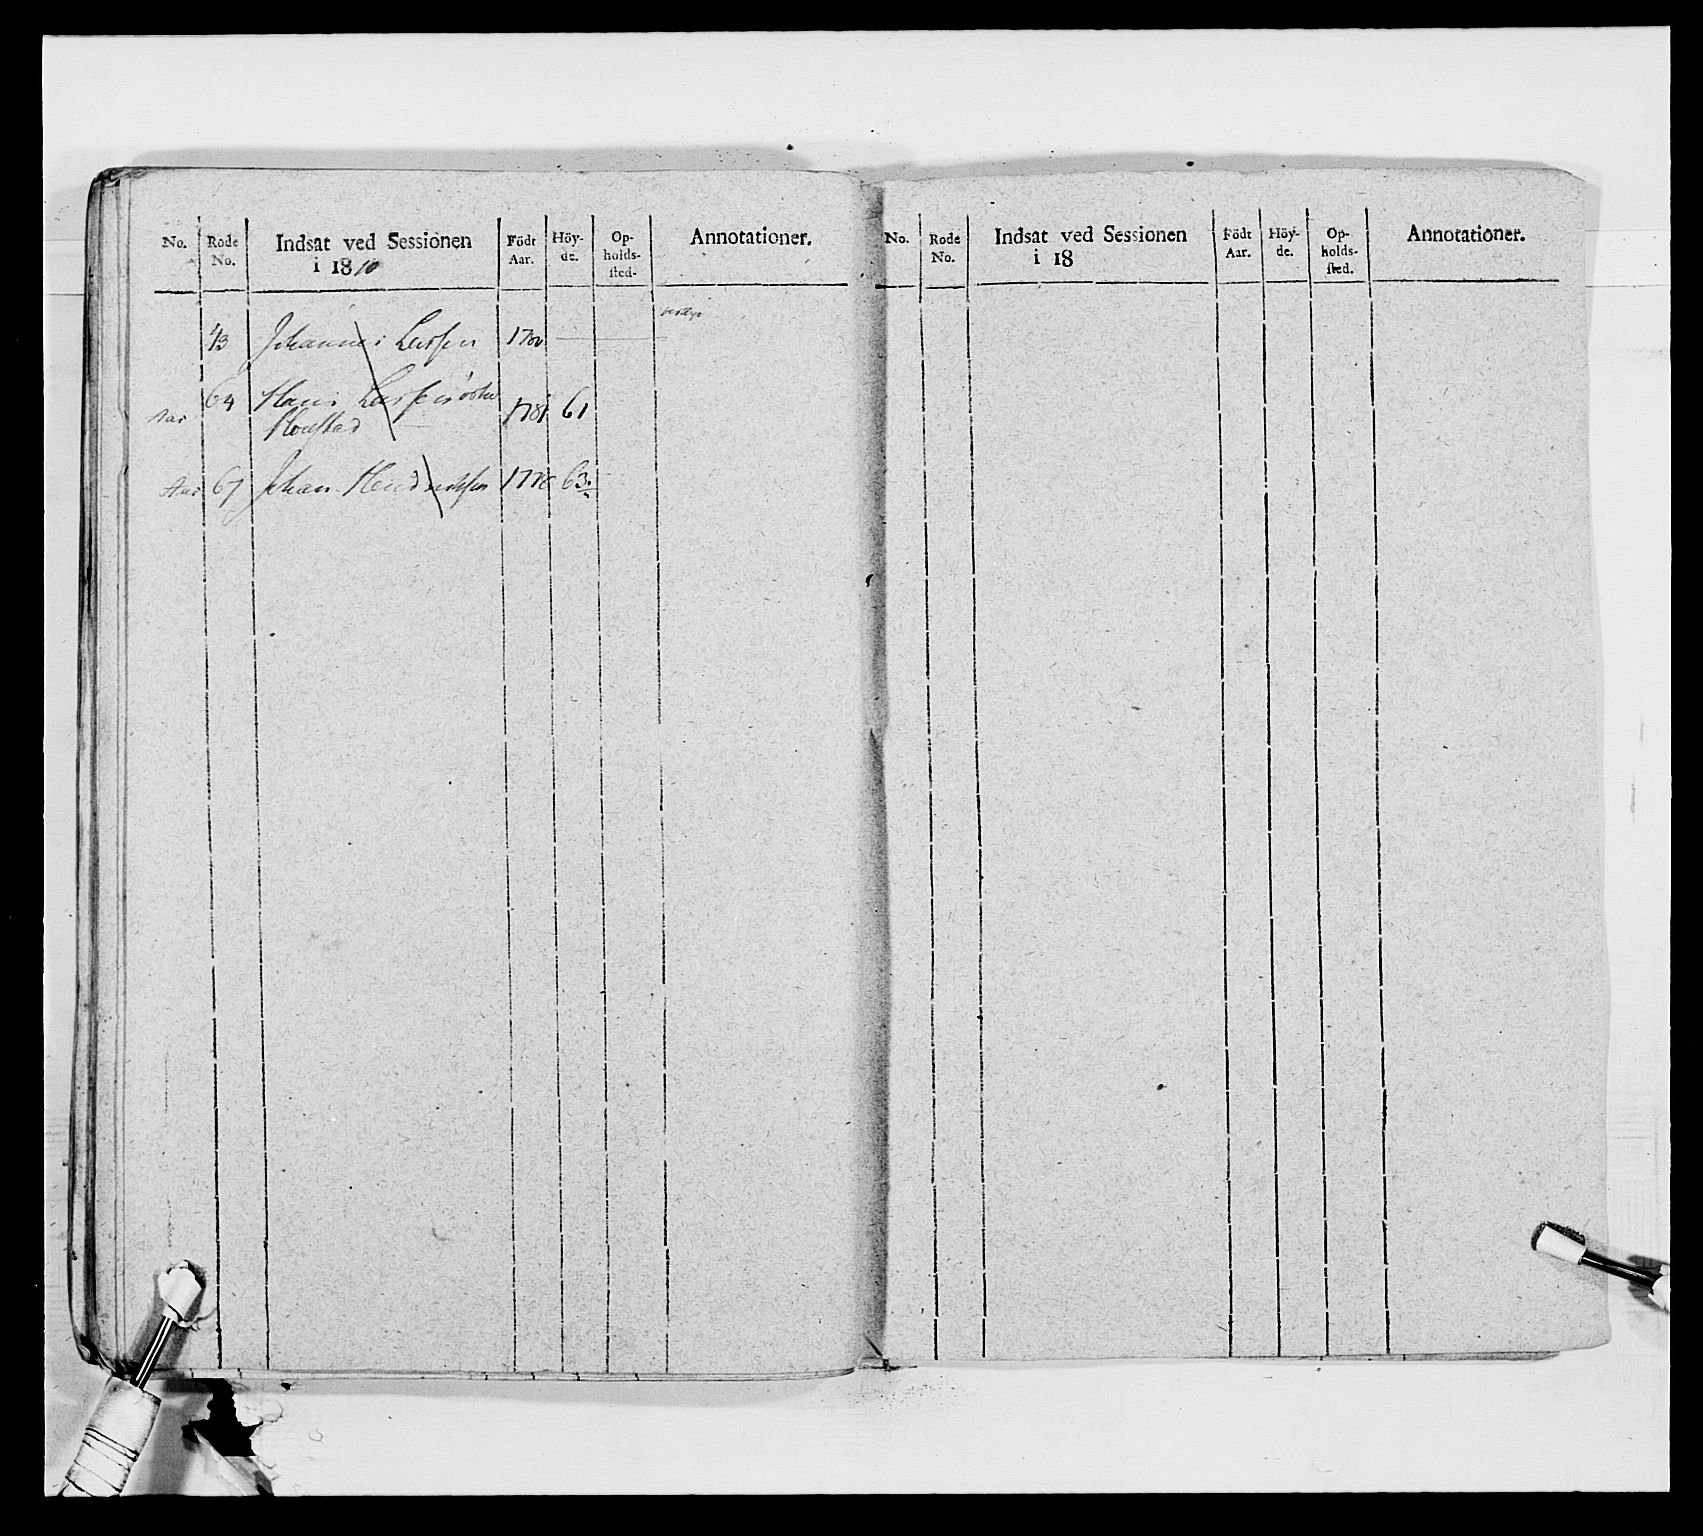 No. Rode No. Indsat ved Sessionen i 1810 Födt Aar. Höy-de. Op-holds-sted. Annotationer.
43 Johannes Larsen
64 Hans Larsen 1781 61
67 Johan Hendrichsen 63
No. Rode No. Indsat ved Sessionen i 18 Födt Aar. Höy-de. Op-holds-sted. Annotationer.